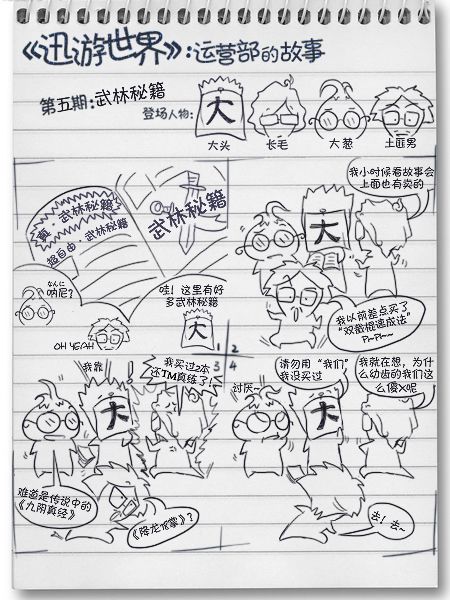 《迅游世界》:运营部的故事
第五期:武林秘籍
登场人物:
大
大头
长毛
大葱
土匪男
真 武林秘籍
超自由 武林秘籍
武林秘籍
なんに
呐尼?
哇!这里有好
多武林秘籍
OH YEAH
大
1
我小时候看故事会
上面也有卖的
大
我以前差点买了
“双截棍速成法”
2
3
我靠
我买过2本
还TM真练了!
大
难道是传说中的
《九阴真经》
《降龙十八掌》?
4
讨厌~
请勿用“我们”
我没买过
我就在想,为什
么幼齿的我们这
么傻X呢
大
去!去~